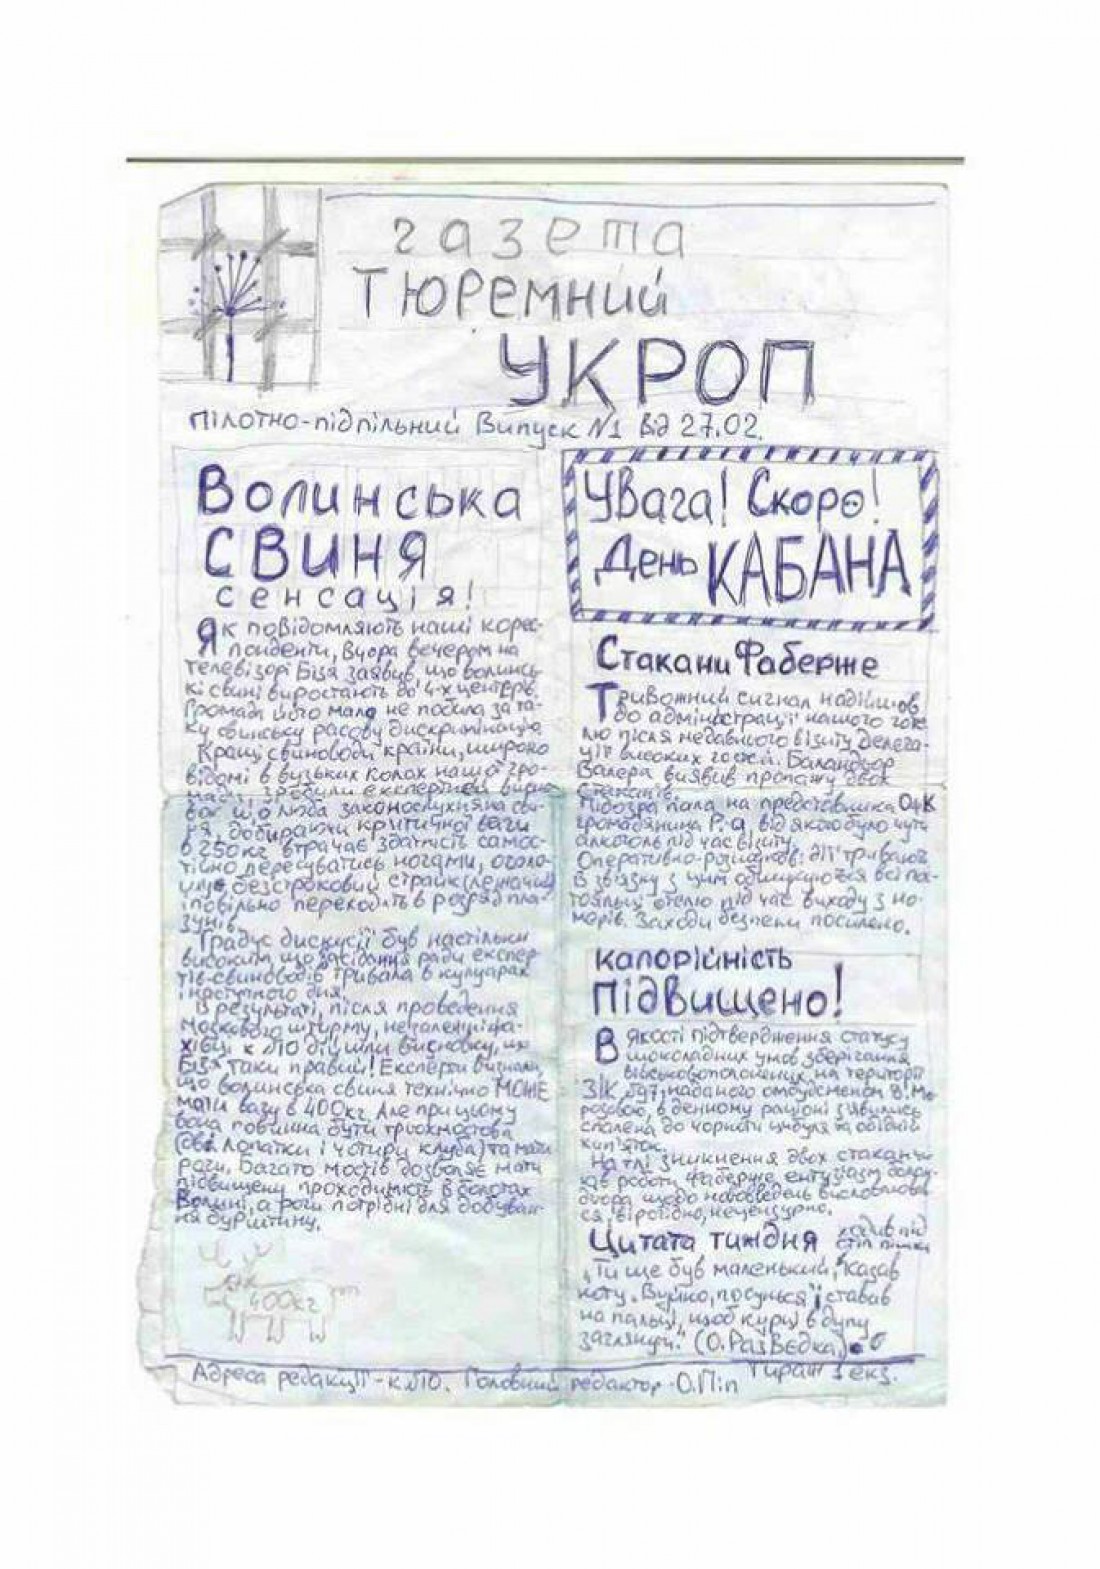 газета
ТЮРЕМНИЙ
УКРОП
Пілотно-підпільний Випуск №1 від 27.02.
Волинська
СВИНЯ
сенсація!
Як повідомляють наші корес-
понденти, вчора вечером на
телевізорі Бізя заявив, що волинсь-
кі свині виростають до 4-х центнерів.
Громада його мало не побила за та-
ку свинську расову дискримінацію
Кращі свиноводи країни, широко
відомі в вузьких колах нашої гро-
зробили експертний
що люба законослухняна сви-
ня, добираючи критичної ваги
в 250кг втрачає здатність самос-
тійно пересуватись ногами, оголо-
шує безстроковий страйк (лежачий)
і повільно переходить в розряд пла-
зунів.
Градус дискусії був настільки
високим, що засідання ради експер-
тів-свиноводів тривала в кулуарах
і наступного дня.
В результаті, після проведення
мозкового штурму, незалежні фа-
хівці к №10 дійшли висновку, що
Бізя таки правий! Експерти визнали,
що волинська свиня технічно МОЖЕ
мати вагу в 400кг. Але при цьому
вона повинна бути трьохмостова
(дві лопатки і чотири клуба) та мати
роги. Багато мостів дозволяє мати
підвищену проходимість в болотах
Волині, а роги потрібні для добуван-
ня бурштину.
400кг
Увага! Скоро!
День КАБАНА
Стакани Фаберже
Тривожний сигнал надійшов
до адміністрації нашого готе-
лю після недавнього візиту делега-
ції високих гостей. Баландьор
Валера виявив пропажу двох
стаканів.
Підозра пала на представника
громадянина Р-а, від якого було чути
алкоголь під час візиту.
Оперативно-розшукові дії тривають
В зв'язку з цим обшукуються всі пос-
тояльці отелю під час виходу з но-
мерів. Заходи безпеки посилено.
калорійність
Підвищено!
В якості підтвердження статусу
шоколадних умов зберігання
військовополонених, на території
наданого омбудсменом В. Мо-
розовою, в денному раціоні з'явились
спалена до чорноти цибуля та обідній
кип'яток.
На тлі зникнення двох стаканчи-
ків роботи Фаберже, ентузіазм
щодо нововведень висловлював-
ся, вірогідно, нецензурно.
Цитата тиждня ходив під
стіл пішки
„Ти ще був маленький, казав
коту „Вуйко, посунься" і ставав
на пальці, щоб курці в дупу
заглянути." (О.РазВєдка)
Адреса редакції - к. №10. Головний редактор - О.Піп
Тираж 1 екз.